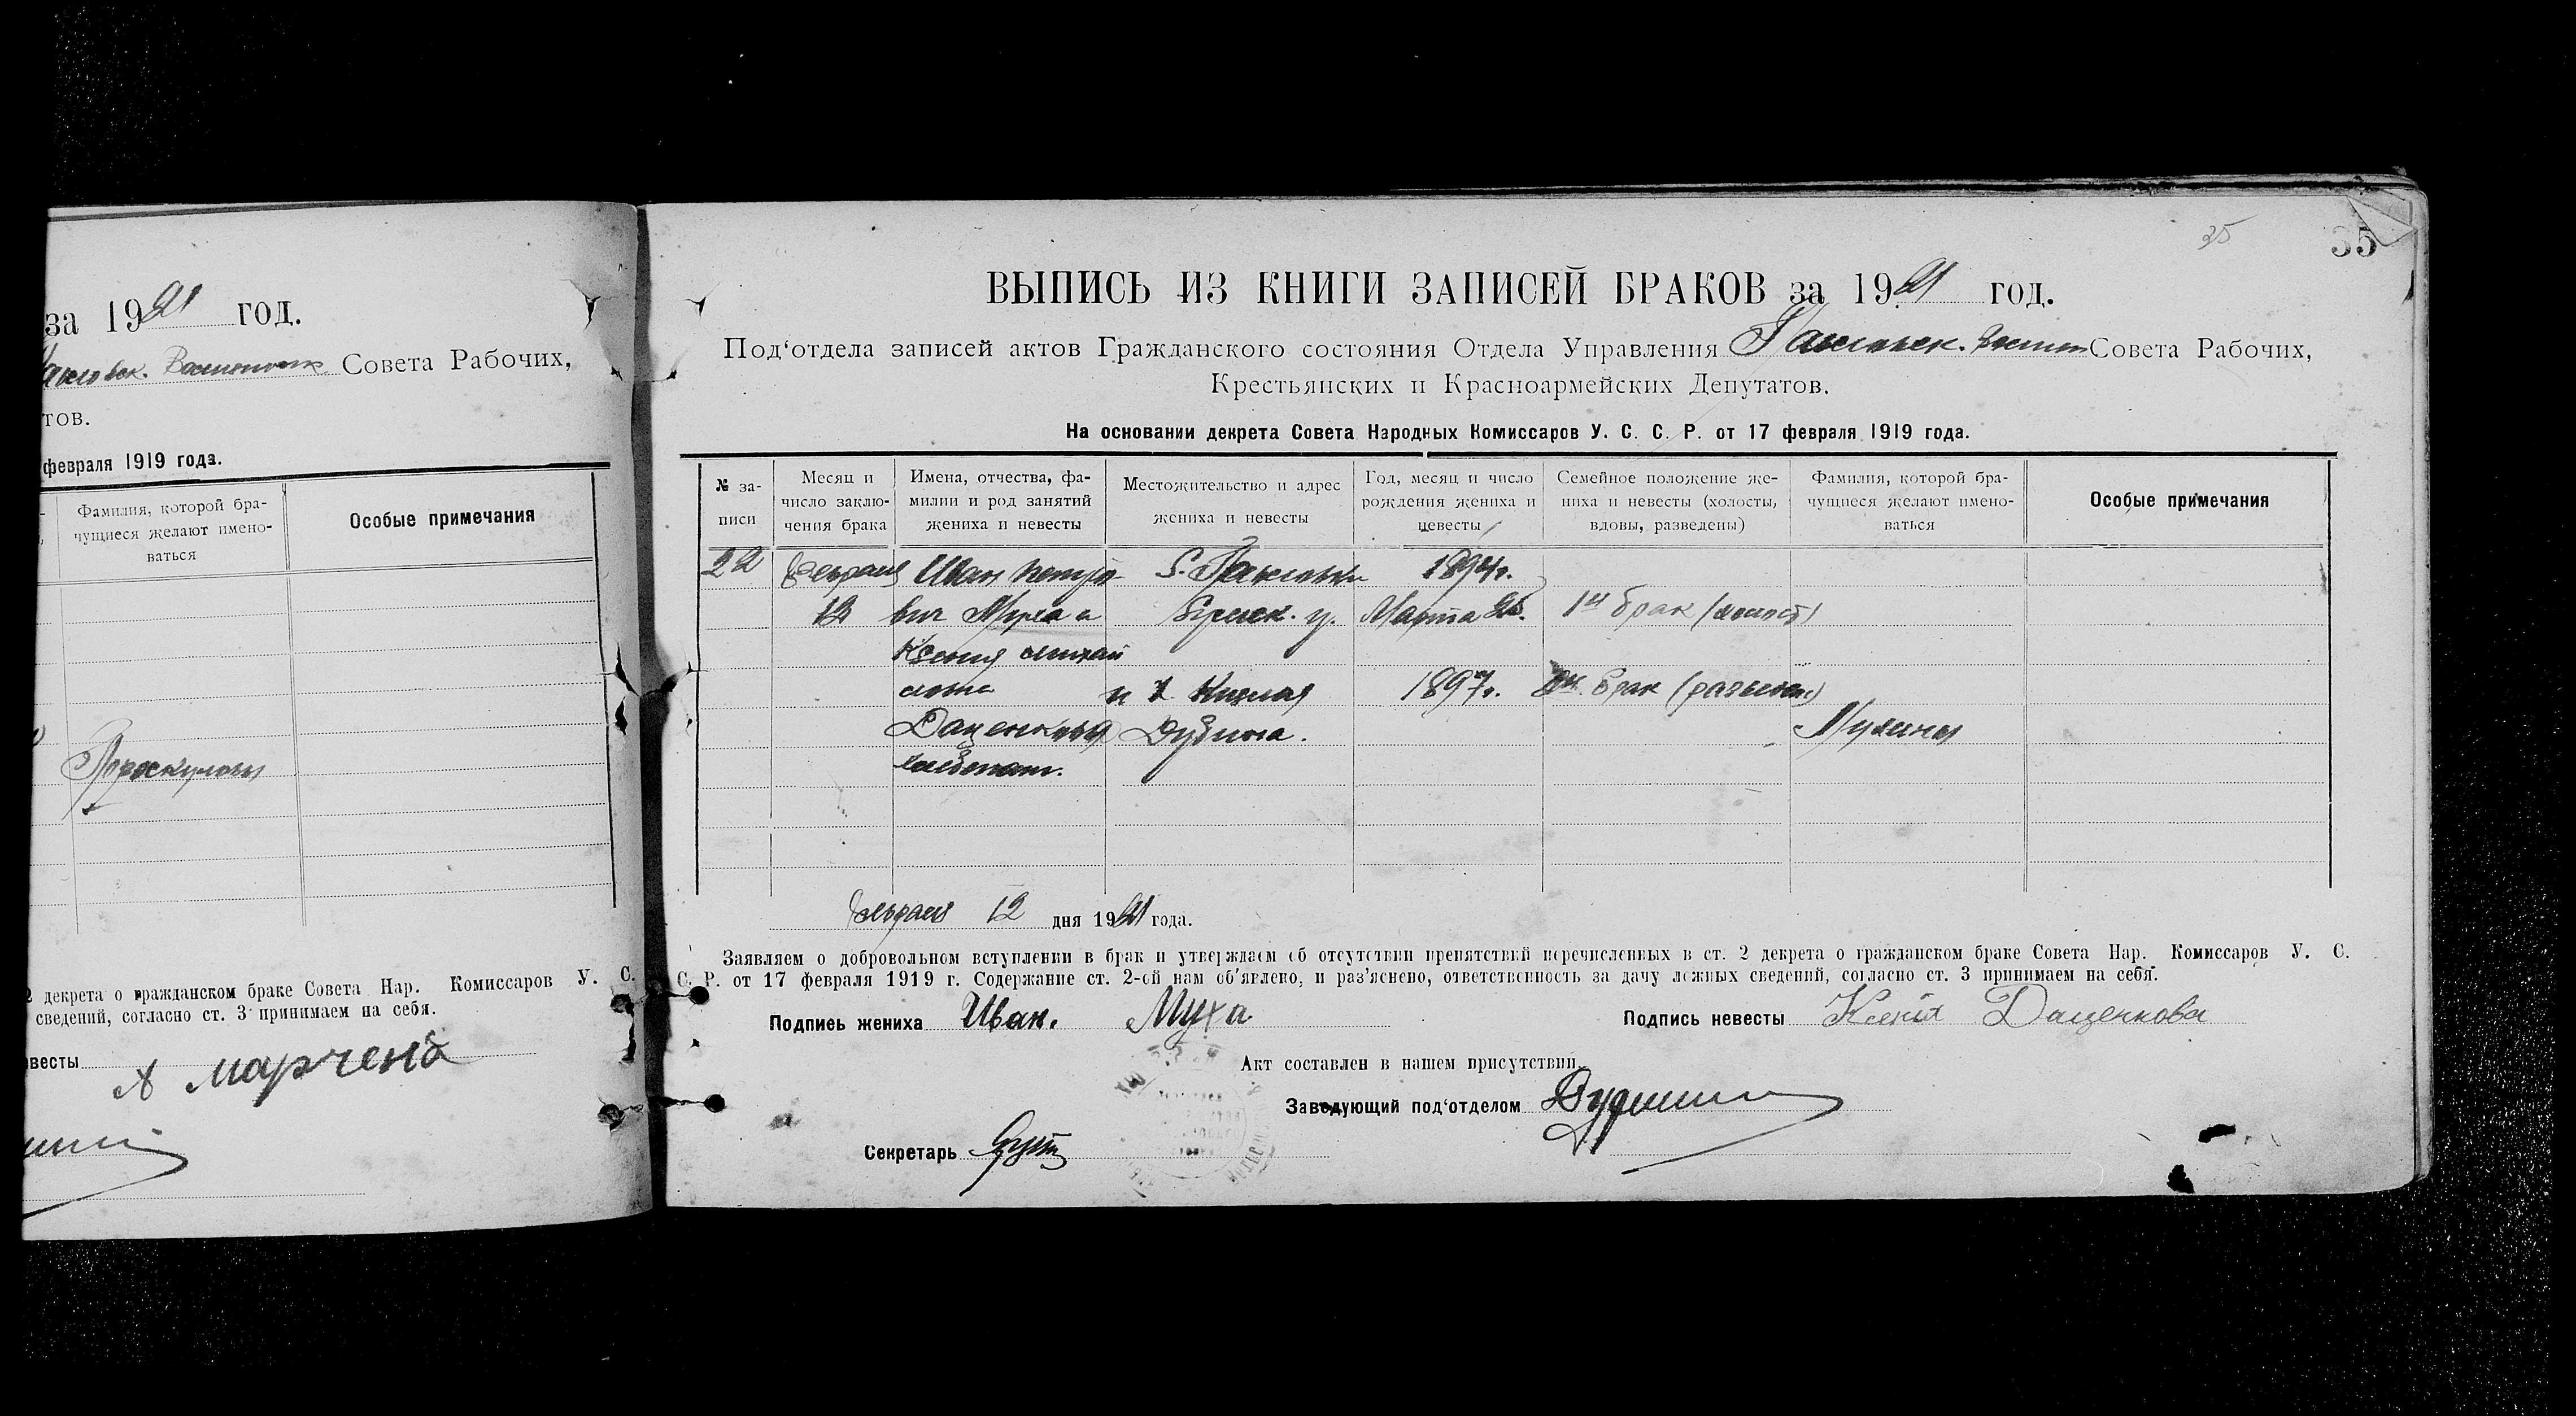 за 1921 год.
Совета Рабочих,
тов.
февраля 1919 года.
Фамилия, которой бра-
чущиеся желают имено-
ваться
Особые примечания
2 декрета о гражданском браке Совета Нар. Комиссаров У. С.
сведений, согласно ст. 3 принимаем на себя.
евесты А Марченко
35
35
ВЫПИСЬ ИЗ КНИГИ ЗАПИСЕЙ БРАКОВ за 1921 год.
Под'отдела записей актов Гражданского состояния Отдела Управления Совета Рабочих,
Крестьянских и Красноармейских Депутатов.
На основании декрета Совета Народных Комиссаров У. С. С. Р. от 17 февраля 1919 года.
№ за-
писи
Месяц и
число заклю-
чения брака
Имена, отчества, фа-
милии и род занятий
жениха и невесты
Местожительство и адрес
жениха и невесты
Год, месяц и число
рождения жениха и
невесты
Семейное положение же-
ниха и невесты (холосты,
вдовы, разведены)
Фамилия, которой бра-
чущиеся желают имено-
ваться
Особые примечания
22 Февраля Иван Петро- 1894г.
12 вич Муха и Марта 1й брак (холост)
Ксения Михай
ловна 1897г. брак
Даценкова Дубина. Мухина
хлебопаш.
Февраля 12 дня 1921 года.
Заявляем о добровольном вступлении в брак и утверждаем об отсутствии препятствий перечисленных в ст. 2 декрета о гражданском браке Совета Нар. Комиссаров У. С.
С. Р. от 17 февраля 1919 г. Содержание ст. 2-ой нам об'явлено, и раз'яснено, ответственность за дачу ложных сведений, согласно ст. 3 принимаем на себя.
Подпись жениха Иван. Муха
Подпись невесты Ксенія Даценкова
Акт составлен в нашем присутствии.
Заведующий под'отделом
Секретарь